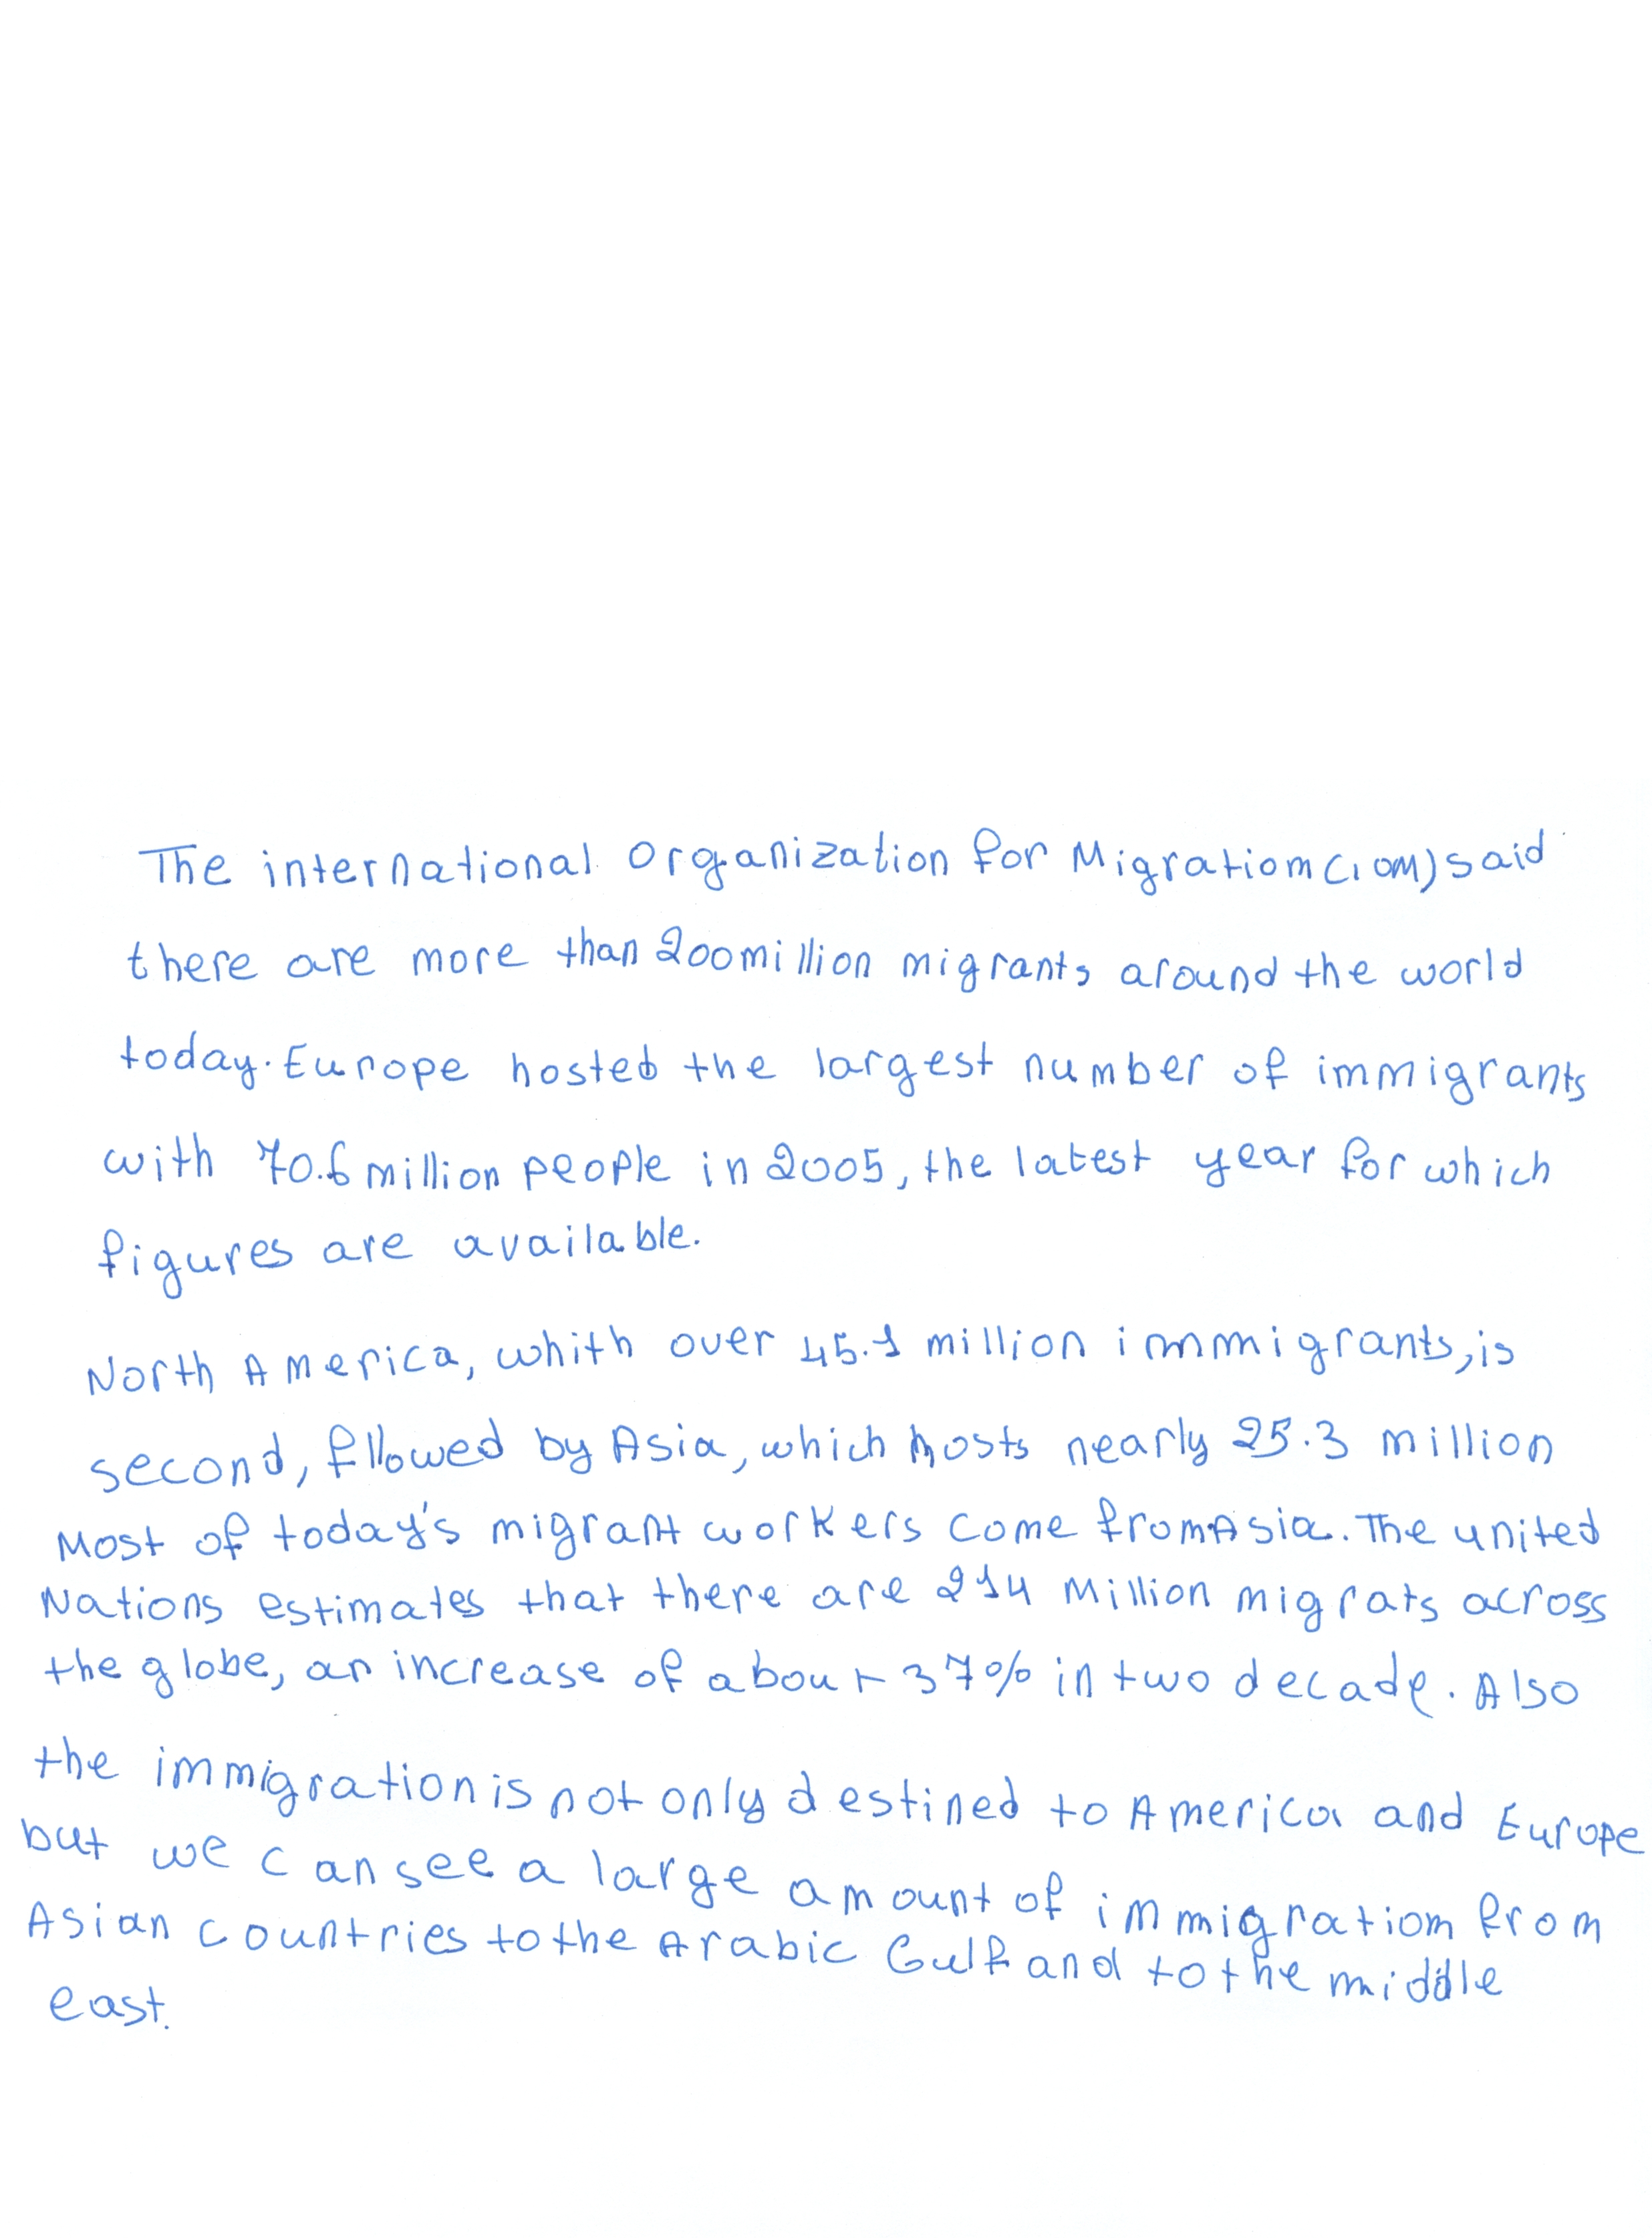 The international Organization for Migratiom (IOM) said
there are more than 200 million migrants around the world
today. Europe hosted the largest number of immigrants
with 70.6 million people in 2005, the latest year for which
figures are available.
North America, whith over 45.1 million immigrants, is
second, fllowed by Asia, which hosts nearly 25.3 million
Most of today's migrant workers come from Asia. The united
Nations estimates that there are 214 Million migrats across
the globe, an increase of about 37% in two decade. Also
the immigration is not only destined to America and Europe
but we can see a large amount of immigratiom from
Asian countries to the Arabic Gulf and to the middle
east.